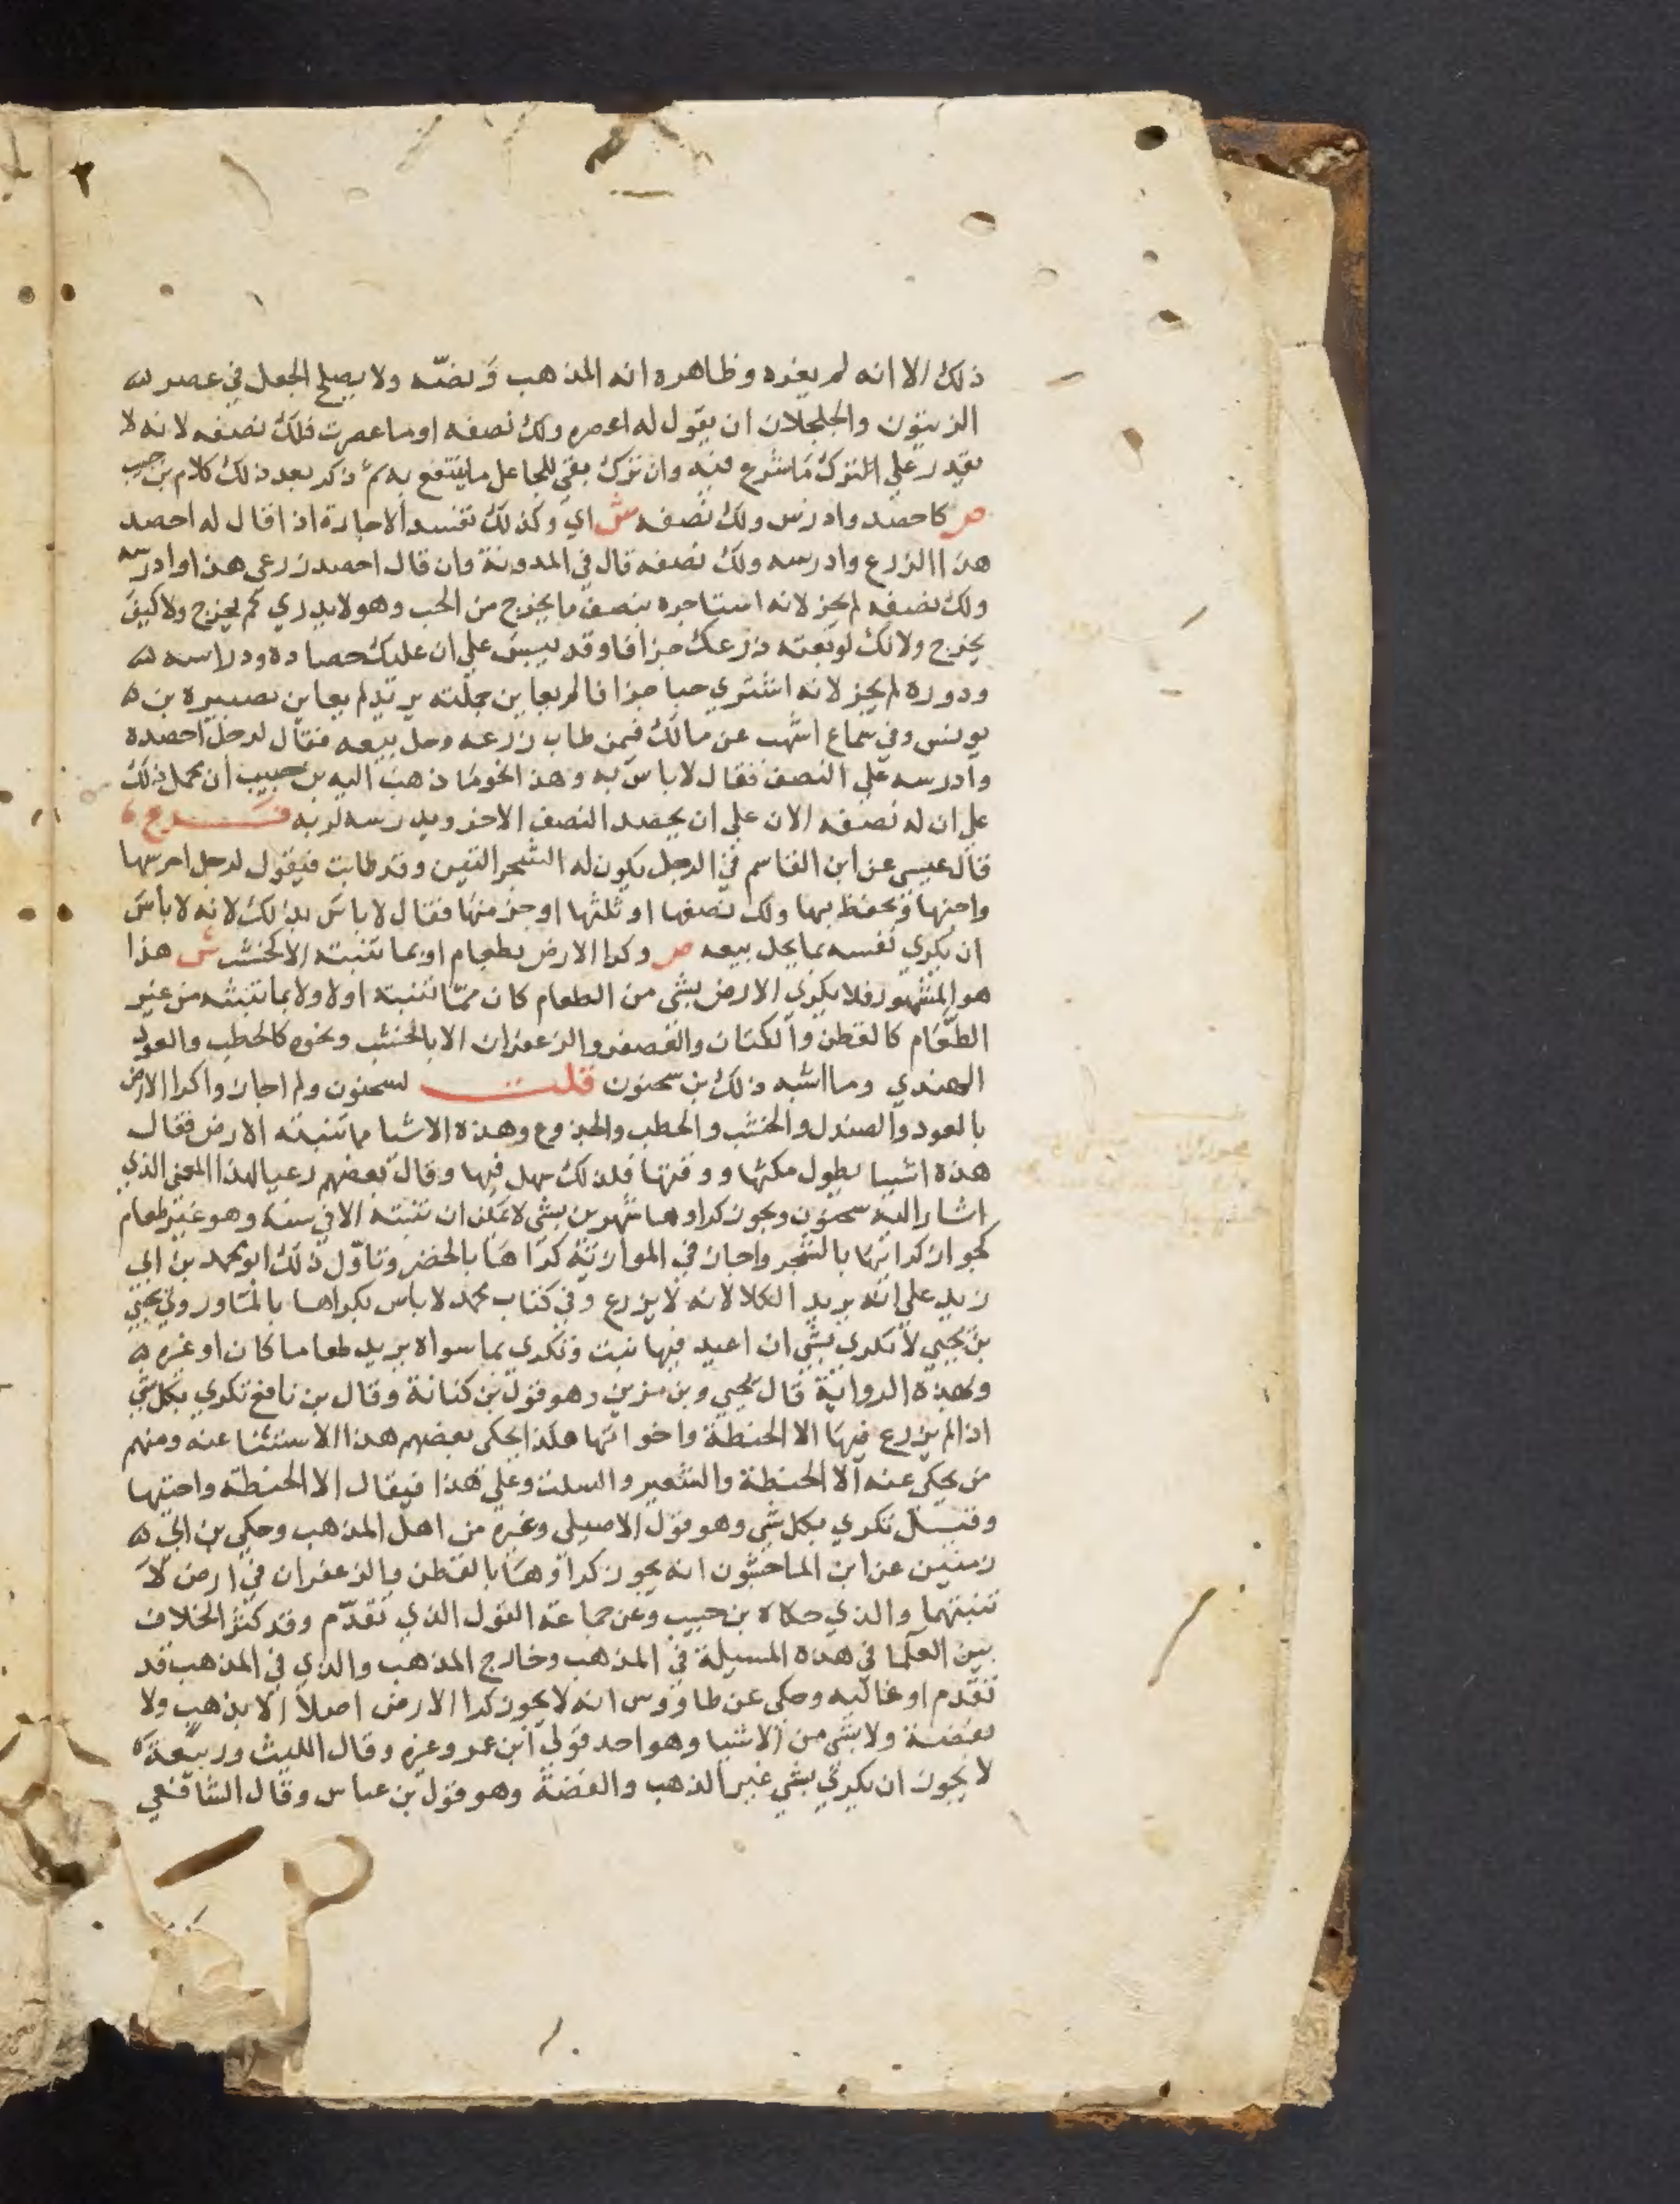 ذلك الا انه لم يعزه وظاهره انه المذهب ونصّه ولا يصلح الجعل في عصر
الزيتون والجلجلان ان يقول له اعصره ولك نصفه او ما عصرت فلك نصفه لانه لا
يقدر على الترك ما شرع فيه وان ترك بقي للجاعل ما ينتفع به ثم ذكر بعد ذلك كلام بن حبيب
ص كاحصد وادرس ولك نصفه ش اي وكذلك تفسد الاجارة اذا قال له احصد
هذا الزرع وادرسه ولك نصفه قال في المدونة وان قال احصد زرعي هذا وادرسه
ولك نصفه لم يجز لانه استاجره بنصف ما يخرج من الحب وهو لا يدري كم يخرج ولا كيف
يخرج ولانك لو بعته زرعك جزافا وقد يبس على ان عليك حصاده ودراسه
ودروه لم يجز لانه اشتري حبا جزافا لم يعاين جملته يريد لم يعاين نصبيره بن
يونس وفي سماع اشهب عن مالك فيمن طاب زرعه وحل بيعه فقال لرجل احصده
وادرسه على النصف فقال لا باس به وهذا نحو ما ذهب اليه بن حبيب ان يحمل ذلك
على ان له نصفه الان على ان يحصد النصف الاخر ويدرسه لربه فرع
قال عيسى عن ابن القاسم في الرجل يكون له الشجر التين وقد طابت فيقول لرجل احرسها
واجنها وتحفظ بها ولك نصفها او ثلثها او جز منها فقال لا باس بذلك لانه لا باس
ان يكري نفسه بما يحل بيعه ص وكرا الارض بطعام او بما تنبته الا كخشب ش هذا
هو المشهور فلا يكري الارض بشي من الطعام كان مما تنبته او لا ولا بما تنبته من غير
الطعام كالقطن والكتان والعصفر والزعفران الا بالخشب ونحوه كالحطب والعود
الهندي وما اشبه ذلك بن سحنون قلت لسحنون ولم اجازوا كرا الارض
بالعود والصندل والخشب والحطب والجذوع وهذه الاشيا مما تنبته الارض فقال
هذه اشيا يطول مكثها ووقتها فلذلك سهل فيها وقال بعضهم رعيا لهذا المعنى الذي
اشار اليه سحنون ويجوز كراوها شهرين بشي لا يمكن ان تنبته الا في سنة وهو غير طعام
كجواز كرائها بالشجر واجاز في الموازية كراها بالخضر وتاول ذلك ابو محمد بن ابي
زيد على انه يريد الكلا لانه لا يزرع وفي كتاب محمد لا باس بكراها بالماور وفي يحيى
بن يحيى لا تكرى بشي ان اعيد فيها نبت وتكرى بما سواه يريد طعاما كان او غيره
وبهذه الرواية قال يحيى وبن مزين وهو قول بن كنانة وقال بن نافع تكرى بكل شي
اذا لم يزرع فيها الا الحنطة واخواتها هكذا يحكى بعضهم هذا الاستثنا عنه ومنهم
من يحكى عنه الا الحنطة والشعير والسلت وعلى هذا فيقال الا الحنطة واختيها
وقيل تكرى بكل شي وهو قول الاصيلى وغيره من اهل المذهب وحكى بن ابي
زمنين عن ابن الماجشون انه يجوز كراوها بالقطن والزعفران في ارض لا
تنبتهما والذي حكاه بن حبيب وعن جماعة القول الذي تقدّم وقد كثر الخلاف
بين العلما في هذه المسيلة في المذهب وخارج المذهب والذي في المذهب قد
تقدم او غالبه وحكى عن طاووس انه لا يجوز كرا الارض اصلا الا بذهب ولا
بفضة ولا بشي من الاشيا وهو احد قولي ابن عمر وغيره وقال الليث وربيعة
لا يجوز ان يكرى بشي غير الذهب والفضة وهو قول بن عباس وقال الشافعي